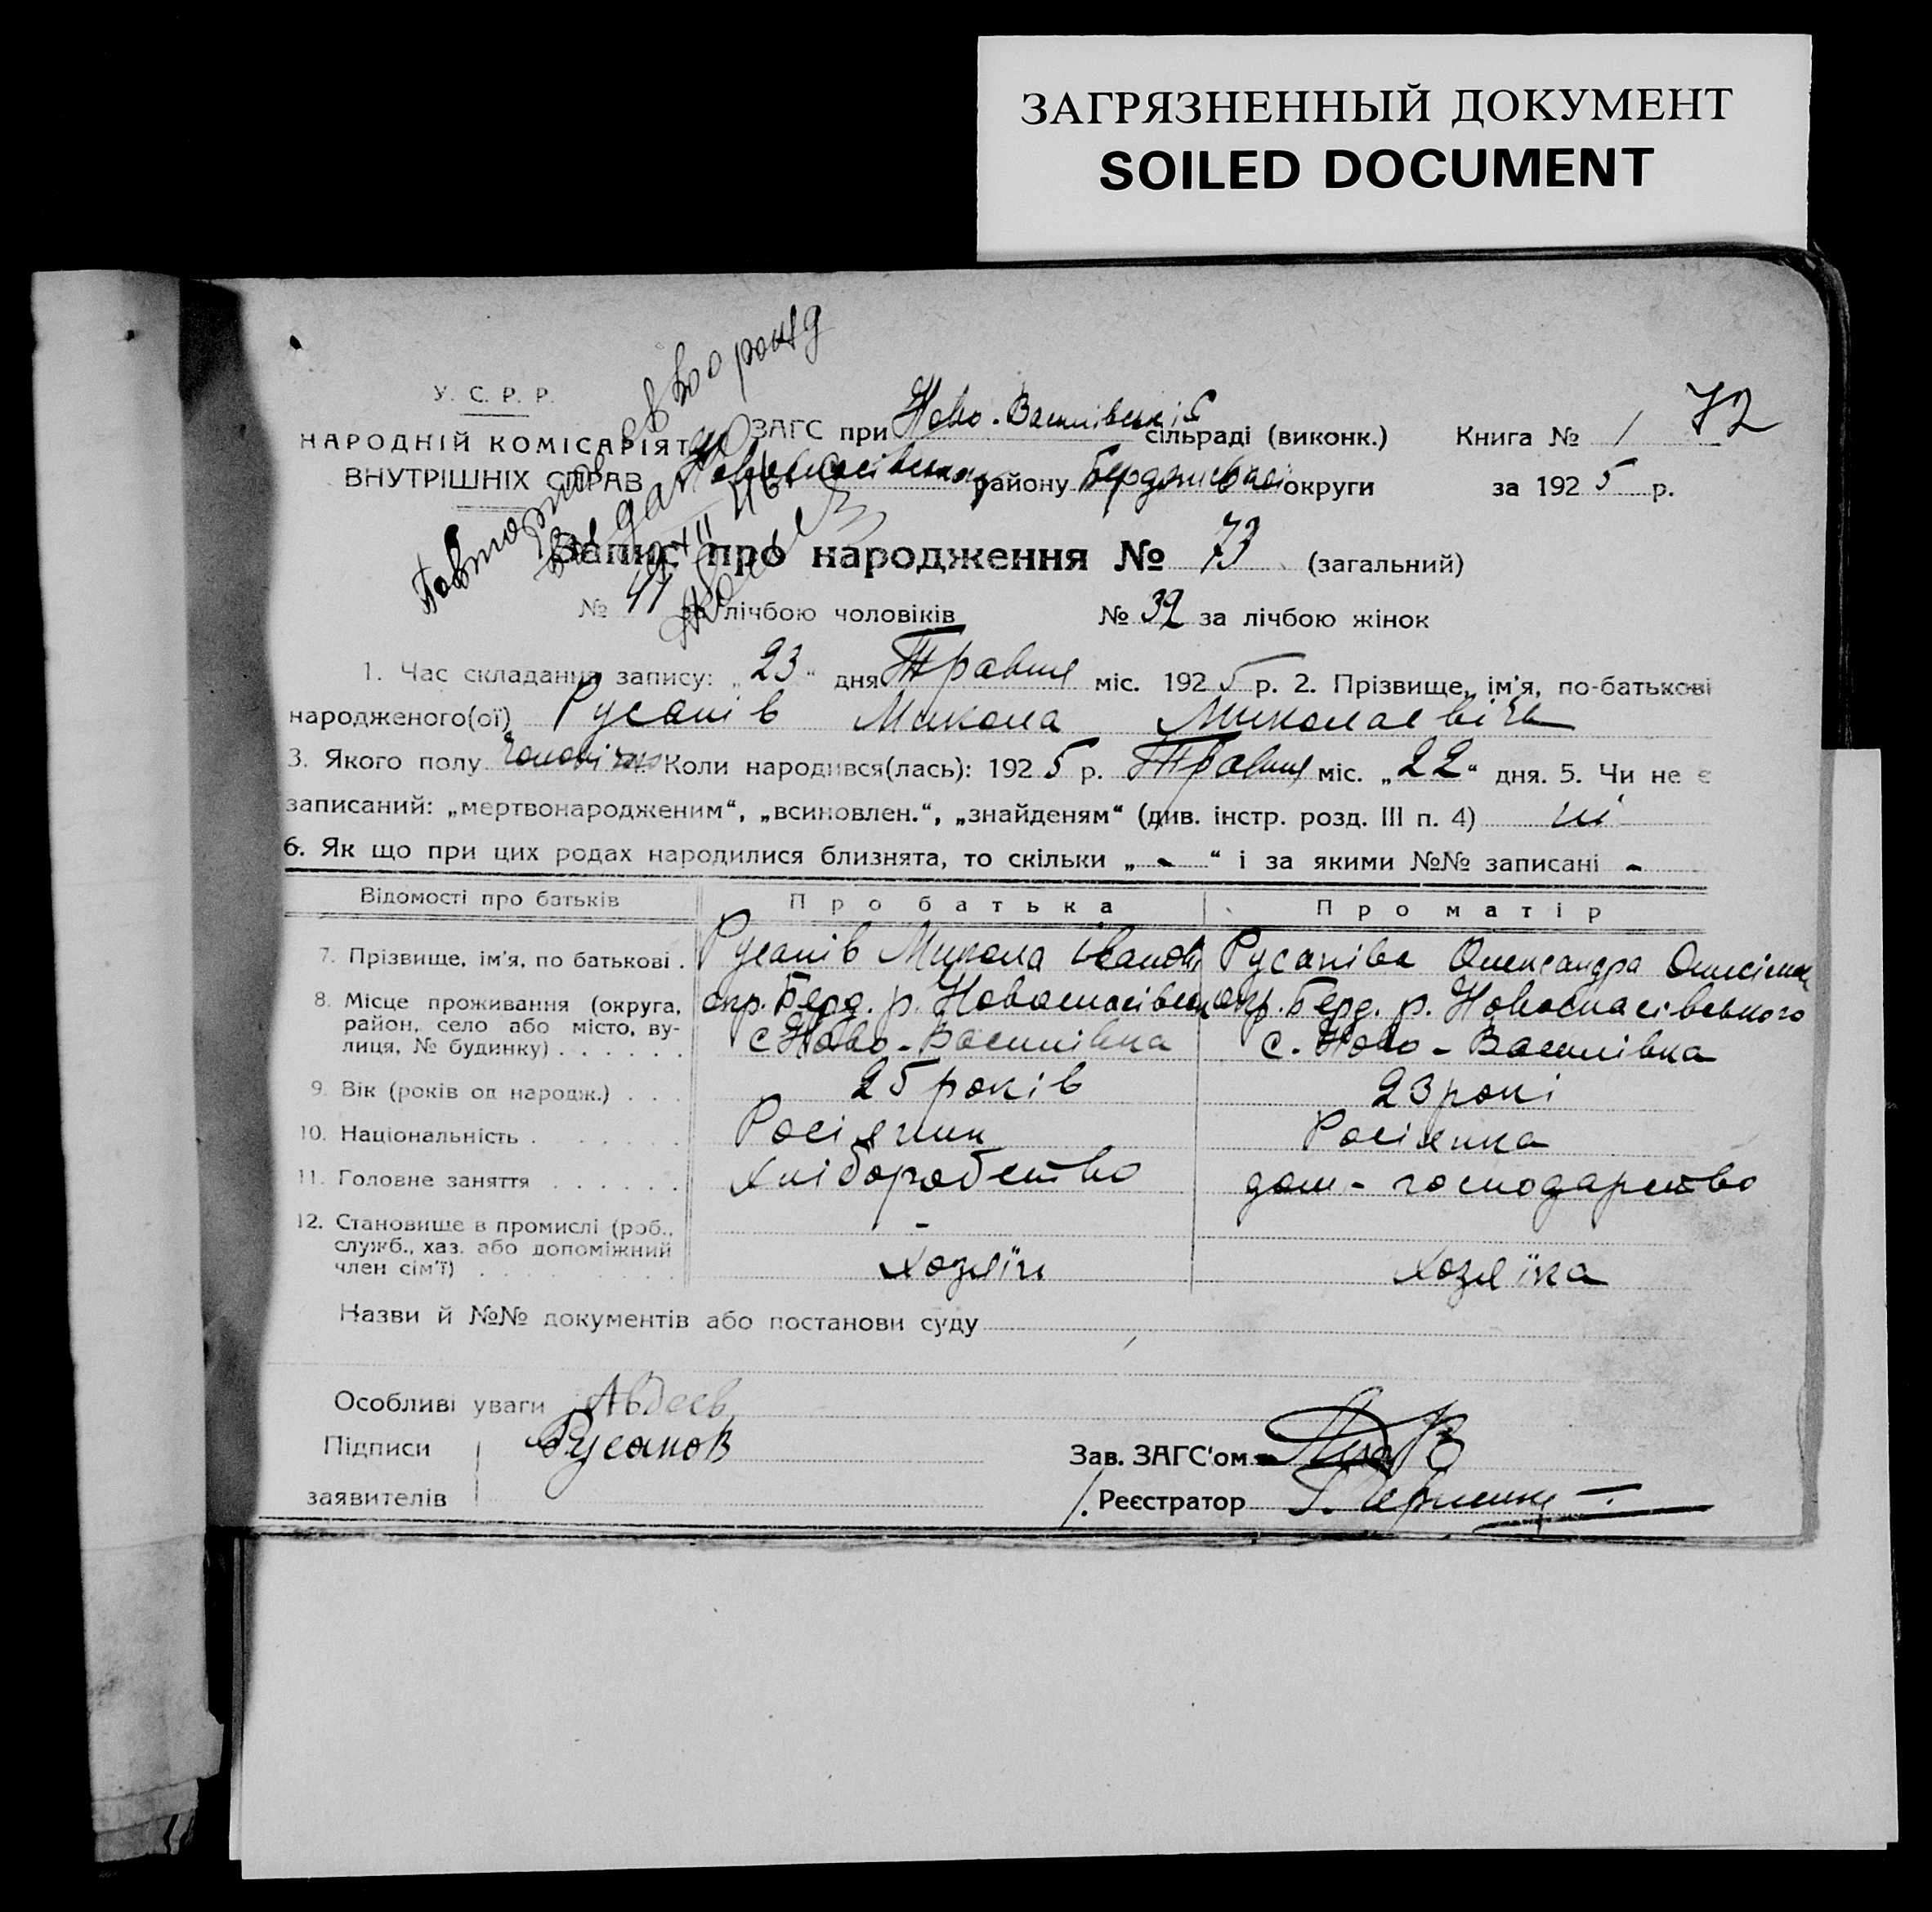 ЗАГРЯЗНЕННЫЙ ДОКУМЕНТ
SOILED DOCUMENT
72
У. С. Р. Р.
НАРОДНІЙ КОМІСАРІЯТ
ВНУТРІШНІХ СПРАВ
ЗАГС при Ново-Василівській сільраді (виконк.) Книга № 1
району округи за 1925 р.
Запис про народження № 73 (загальний)
№ 41 за лічбою чоловіків № 32 за лічбою жінок
1. Час складання запису: „23“ дня Травня міс. 1925 р. 2. Прізвище, ім'я, по-батькові
народженого(ої) Русанів Микола Миколаєвічь
3. Якого полу Коли народився(лась): 1925 р. Травня міс. „22“ дня. 5. Чи не є
записаний: „мертвонародженим“, „всиновлен.“, „знайденям“ (див. інстр. розд. III п. 4) ні
6. Як що при цих родах народилися близнята, то скільки „-“ і за якими №№ записані -
Відомості про батьків Про батька Про матір
7. Прізвище, ім'я, по батькові . Русанів Микола Русаніва Олександра
8. Місце проживання (округа, окр. Берд. р. окр. Берд. р. Новоспасівського
район, село або місто, ву- с Ново-Василівка с. Ново-Василівка
лиця, № будинку) . . . . . .
9. Вік (років од народж.) . . . 25 років 23 рокі
10. Національність . . . . . . . Росіянин Росіянка
11. Головне заняття . . . . . . Хліборобство дом-господарство
12. Становище в промислі (роб., -
служб., хаз. або допоміжний хозяїн хозяїка
член сім'ї) . . . . . . . . .
Назви й №№ документів або постанови суду
Особливі уваги Авдеев
Підписи Русанов Зав. ЗАГС'ом
заявителів Реєстратор